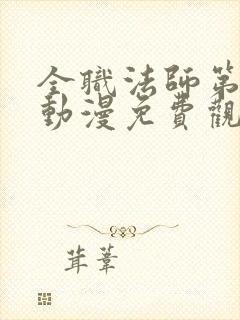 全職法師第
動漫免費觀
茸葦